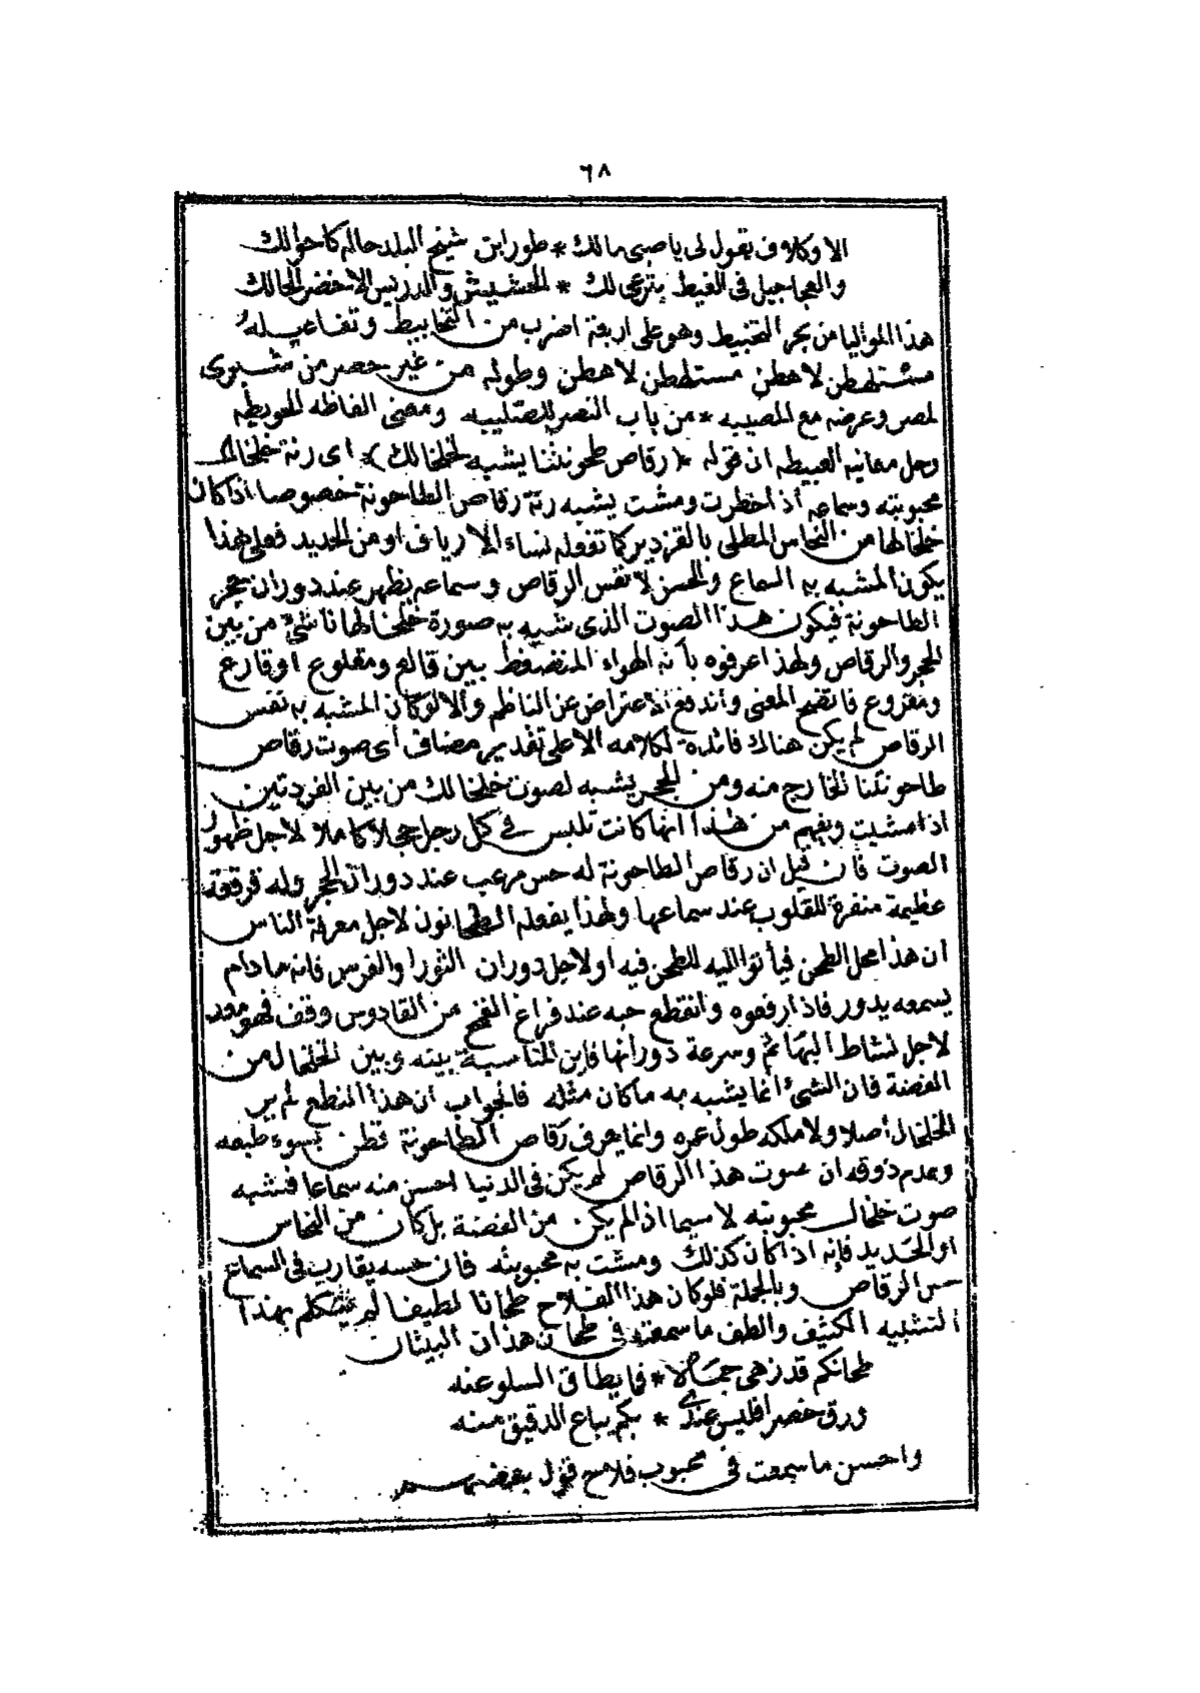 ٦٨
الا وكلاوف يقول لى يا صبى مالك * طور ابن شيخ البلد حاله كاحوالك
والعجاجيل فى الغيط بترعى لك * الحشيش والدرنيس الاخضر الحالك
هذا المواليا من بحر التخبيط وهو على اربعة اضرب من التخابيط وتفاعيله
مستلهطن لاهطن مستلهطن لاهطن وطوله من غير حصر من شبرى
لمصر وعرضه مع المصيبه * من باب النصر للصليبه ومعنى الفاظه الخويطه
وحل معانيه العبيطه ان قوله * (رقاص طحونتنا يشبه لخلخالك) * اى رنة خلخال
محبوبته وسماعه اذا خطرت ومشت يشبه رنة رقاص الطاحونة خصوصا اذا كان
خلخالها من النحاس المطلى بالقزدير كما تفعله نساء الارياف او من الحديد فعلى هذا
يكون المشبه به السماع والحس لا نفس الرقاص وسماعه يظهر عند دوران حجر
الطاحونة فيكون هذا الصوت الذى شبه به صورة خلخالها ناشئ من بين
الحجر والرقاص ولهذا عرفوه بأنه الهواء المنضغط بين قالع ومقلوع او قارع
ومقروع فاتضح المعنى واندفع الاعتراض عن الناظم والا لو كان المشبه به نفس
الرقاص لم يكن هناك فائدة لكلامه الا على تقدير مضاف أى صوت رقاص
طاحونتنا الخارج منه ومن الحجر يشبه لصوت خلخالك من بين الفردتين
اذا مشيت ويفهم من هذا انها كانت تلبس فى كل رجل حجلا كاملا لاجل ظهور
الصوت فان قيل ان رقاص الطاحونة له حس مرعب عند دوران الحجر وله قرقعة
عظيمة منفرة للقلوب عند سماعها ولهذا يفعله الطحانون لاجل معرفة الناس
ان هذا محل الطحن فيأتوا اليه للطحن فيه او لاجل دوران الثور او الفرس فانه ما دام
يسمعه يدور فاذا رفعوه وانقطع حبه عند فراغ القمح من القادوس وقف فهو معد
لاجل نشاط البهائم وسرعة دورانها فاين المناسبة بينه وبين الخلخال من
الفضة فان الشئ انما يشبه به ما كان مثله فالجواب ان هذا المنطع لم ير
الخلخال أصلا ولا ملكه طول عمره وانما يعرف رقاص الطاحونة فظن بسوء طبعه
وعدم ذوقه ان صوت هذا الرقاص لم يكن فى الدنيا احسن منه سماعا فشبه
صوت خلخال محبوبته لا سيما اذا لم يكن من الفضة بل كان من النحاس
او الحديد فإنه اذا كان كذلك ومشت به محبوبته فان حسه يقارب فى السماع
حس الرقاص وبالجملة فلو كان هذا الفلاح طحانا لطيفا لم يتكلم بهذا
التشبيه الكثيف والطف ما سمعته فى طحان هذان البيتان
طحانكم قد زهى جمالا * فما يطاق السلو عنه
ورق خصرا فليس عندى * بكم يباع الدقيق منه
واحسن ما سمعت فى محبوب فلاح قول بعضهم